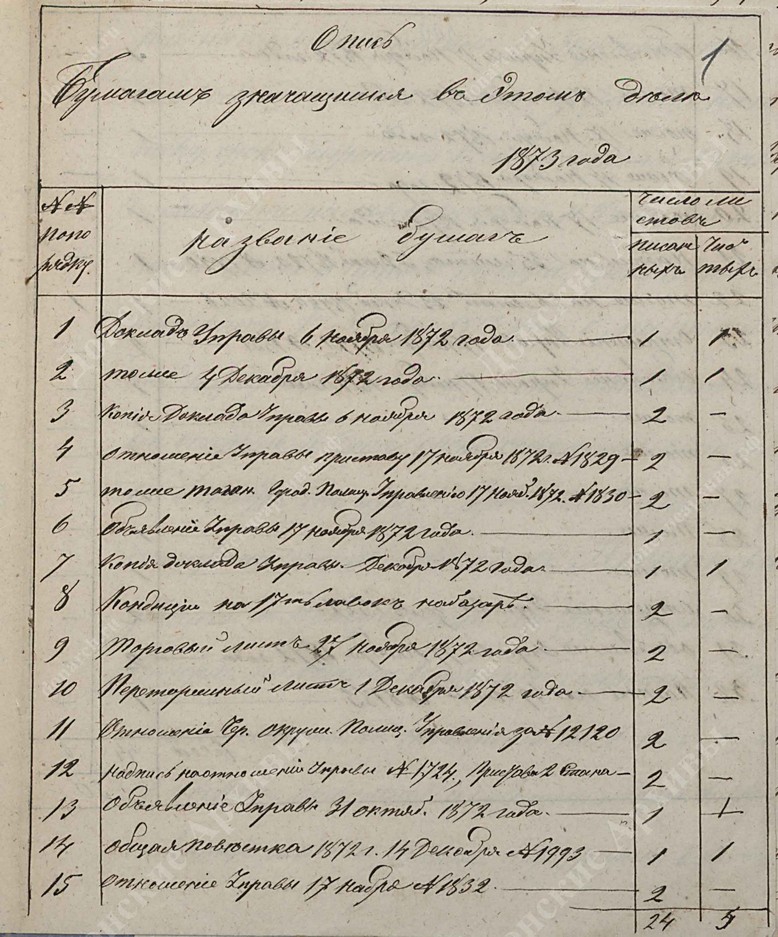 Опись
1
Бумагамъ значащимся въ этомъ дѣлѣ
1873 года
№№ по порядку.
названіе бумагъ
число листовъ
писанныхъ
чистыхъ
1 Докладъ Управы 6 ноября 1872 года. 1 1
2 тоже 4 Декабря 1872 года. 1 1
3 Копія Доклада Управы 6 ноября 1872 года. 2 —
4 Отношеніе Управы приставу 17 ноября 1872 г. № 1829 2 —
5 тоже таган. Город. Полиц. Управленію 17 Нояб. 1872. № 1830 2 —
6 Объявленіе Управы 17 ноября 1872 года. 1 —
7 Копія доклада Управы Декабря 1872 года. 1 1
8 Кондиціи на 17ть лавокъ на базарѣ. 2 —
9 Торговый листъ 27 ноября 1872 года 2 —
10 Переторжный листъ 1 Декабря 1872 года 2 —
11 Отношеніе окружн. Полиц. Управленія за № 12120 2 —
12 надпись на отношеніи Управы № 1724, Пристава 2 Стана 2 —
13 Объявленіе Управы 31 октяб. 1872 года. 1 —
14 Общая повѣстка 1872 г. 14 Декабря № 1993 1 1
15 Отношеніе Управы 17 ноября № 1832. 2 —
24 5